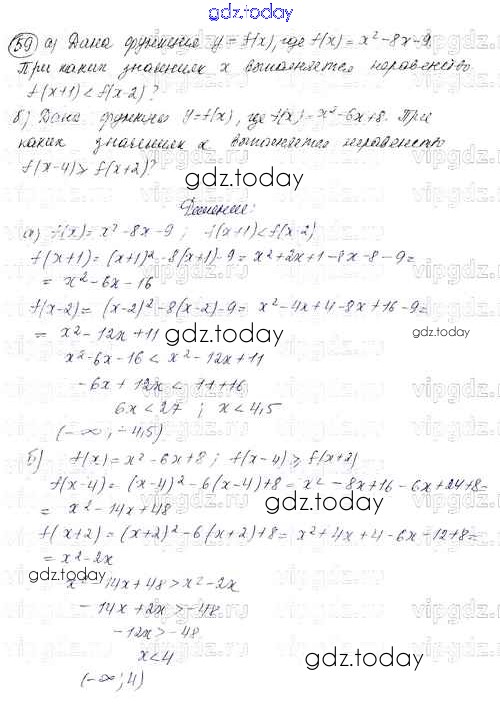 gdz.today
59 а) Дана функция y = f(x), где f(x) = x² - 8x - 9.
При каких значениях x выполняется неравенство
f(x+1) < f(x-2)?
б) Дана функция y = f(x), где f(x) = x² - 6x + 8. При
каких значениях x выполняется неравенство
f(x-4) > f(x+2)?
gdz.today
Решение:
а) f(x) = x² - 8x - 9 ; f(x+1) < f(x-2)
f(x+1) = (x+1)² - 8(x+1) - 9 = x² + 2x + 1 - 8x - 8 - 9 =
= x² - 6x - 16
f(x-2) = (x-2)² - 8(x-2) - 9 = x² - 4x + 4 - 8x + 16 - 9 =
gdz.today
gdz.today
= x² - 12x + 11
x² - 6x - 16 < x² - 12x + 11
- 6x + 12x < 11 + 16
6x < 27 ; x < 4,5
(-∞; -4,5)
б) f(x) = x² - 6x + 8 ; f(x-4) > f(x+2)
f(x-4) = (x-4)² - 6(x-4) + 8 = x² - 8x + 16 - 6x + 24 + 8 =
= x² - 14x + 48
gdz.today
f(x+2) = (x+2)² - 6(x+2) + 8 = x² + 4x + 4 - 6x - 12 + 8 =
= x² - 2x
gdz.today
x² - 14x + 48 > x² - 2x
- 14x + 2x > - 48
- 12x > - 48
x < 4
gdz.today
(-∞; 4)